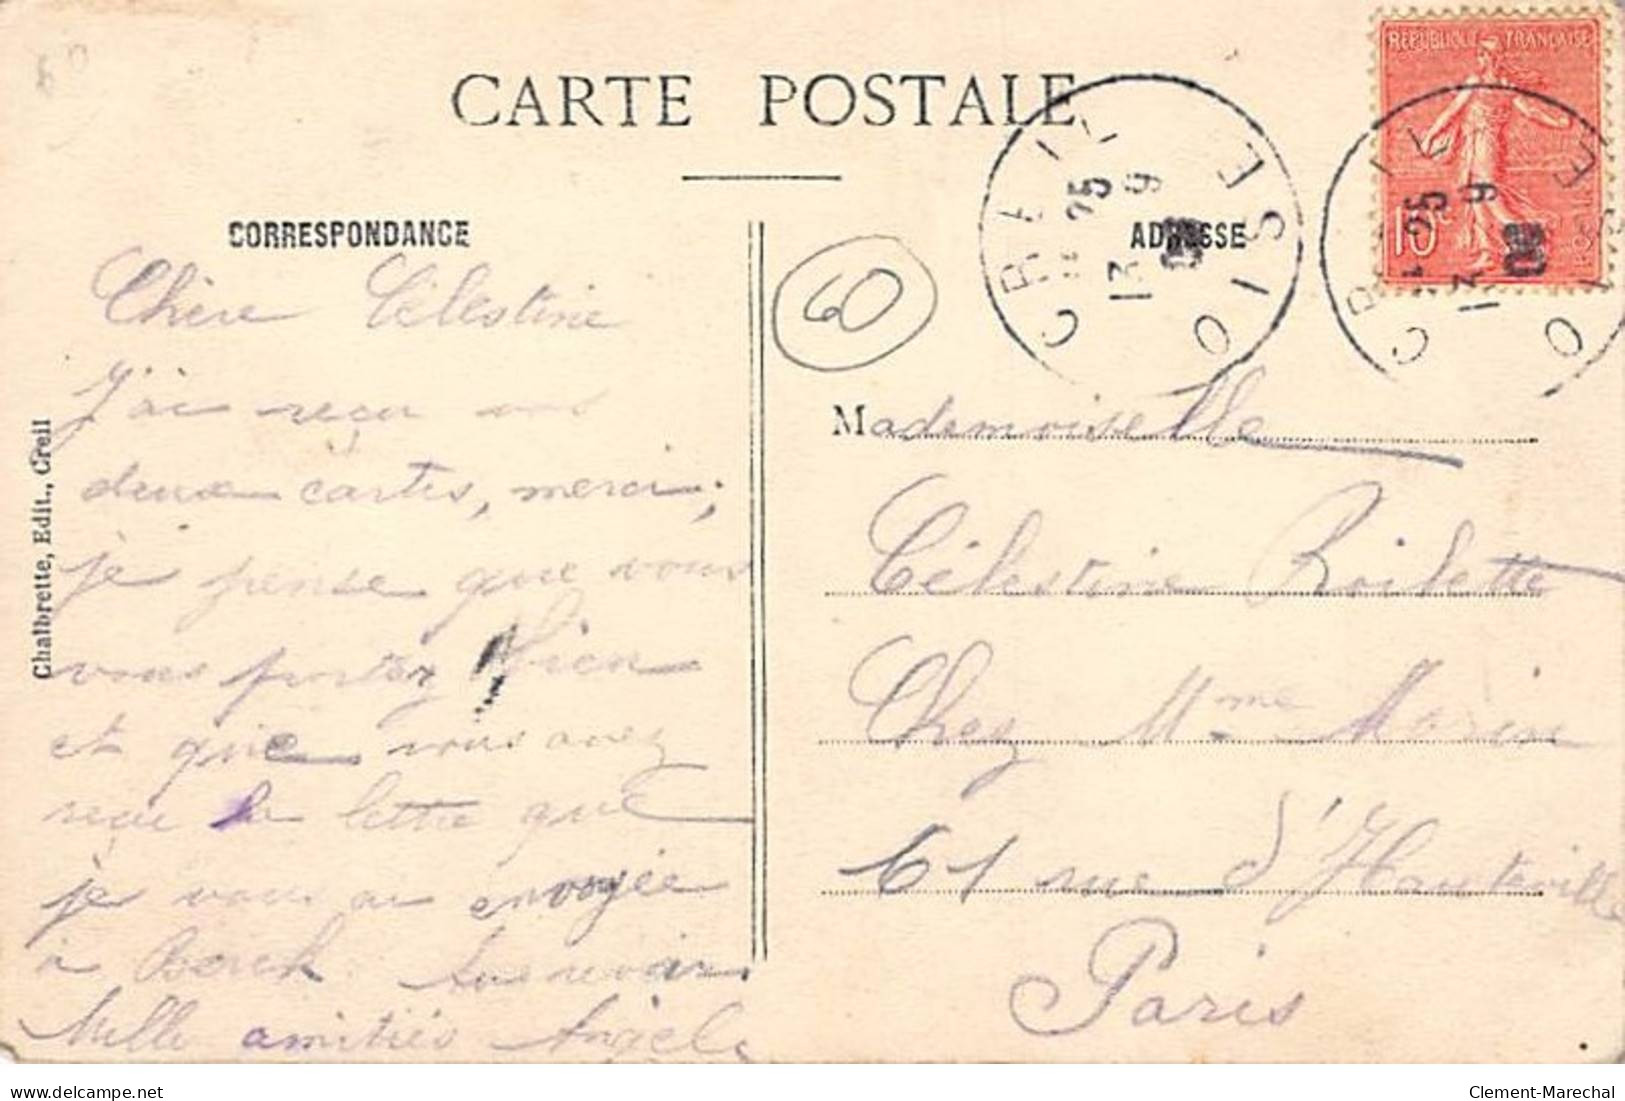 60
CARTE POSTALE
CORRESPONDANCE
ADRESSE
60
CREIL OISE
25
13 9
REPUBLIQUE FRANÇAISE
10c
POSTES
CREIL OISE
25
13 9
Chalbrette, Edit., Creil
Chère Célestine
J'ai reçu vos
deux cartes, merci;
je pense que vous
vous portez bien
et que vous avez
reçu la lettre que
je vous ai envoyée
à Berck. Au revoir
Mille amitiés Angèle
Mademoiselle
Célestine Roilette
Chez Mme Morin
61 rue d'Hauteville
Paris
delcampe.net
Clement-Marechal